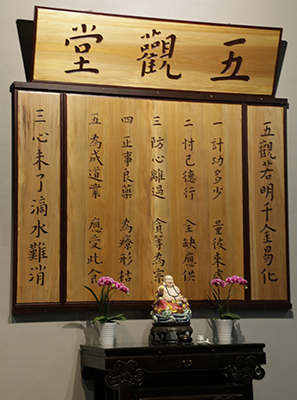 五觀堂
五觀若明千金易化
一 計功多少 量彼來處
二 忖己德行 全缺應供
三 防心離過 貪等為宗
四 正事良藥 為療形枯
五 為成道業 應受此食
三心未了滴水難消